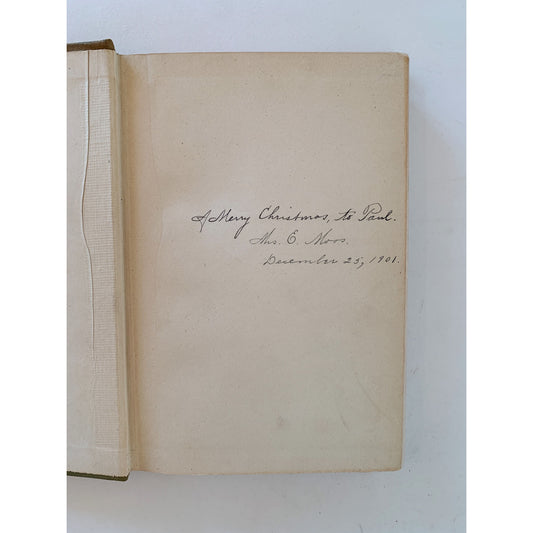 A Merry Christmas, to Paul.
Mrs. E. Moos.
December 25, 1901.